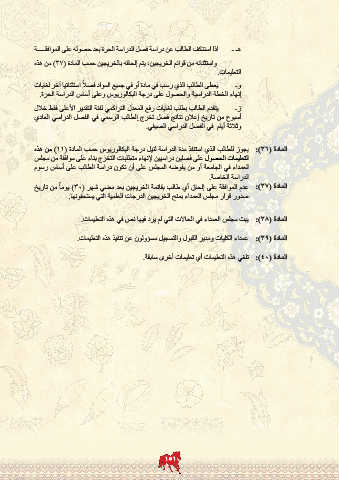 هـ - اذا استنكف الطالب عن دراسة فصل الدراسة الحرة بعد حصوله على الموافقـــة
واستثنائه من قوائم الخريجين، يتم إلحاقه بالخريجين حسب المادة (٣٧) من هذه
التعليمات.
و- يعطى الطالب الذي رسب في مادة أو في جميع المواد فصلاً استثنائياً آخر لغايات
إنهاء الخطة الدراسية والحصول على درجة البكالوريوس وعلى أساس الدراسة الحرة.
ز- يتقدم الطالب بطلب لغايات رفع المعدل التراكمي لفئة التقدير الأعلى فقط خلال
أسبوع من تاريخ إعلان نتائج فصل تخرج الطالب الرسمي في الفصل الدراسي العادي
وثلاثة أيام في الفصل الدراسي الصيفي.
المادة (٣٦): يجوز للطالب الذي استنفذ مدة الدراسة لنيل درجة البكالوريوس حسب المادة (١١) من هذه
التعليمات الحصول على فصلين دراسيين لإنهاء متطلبات التخرج بناء على موافقة من مجلس
العمداء في الجامعة أو من يفوضه المجلس على أن تكون دراسة الطالب على أساس رسوم
الدراسة الخاصة.
المادة (٣٧): عدم الموافقة على إلحاق أي طالب بقائمة الخريجين بعد مضي شهر (٣٠) يوماً من تاريخ
صدور قرار مجلس العمداء بمنح الخريجين الدرجات العلمية التي يستحقونها.
المادة (٣٨): يبت مجلس العمداء في الحالات التي لم يرد فيها نص في هذه التعليمات.
المادة (٣٩): عمداء الكليات ومدير القبول والتسجيل مسؤولون عن تنفيذ هذه التعليمات.
المادة (٤٠): تلغي هذه التعليمات أي تعليمات أخرى سابقة.